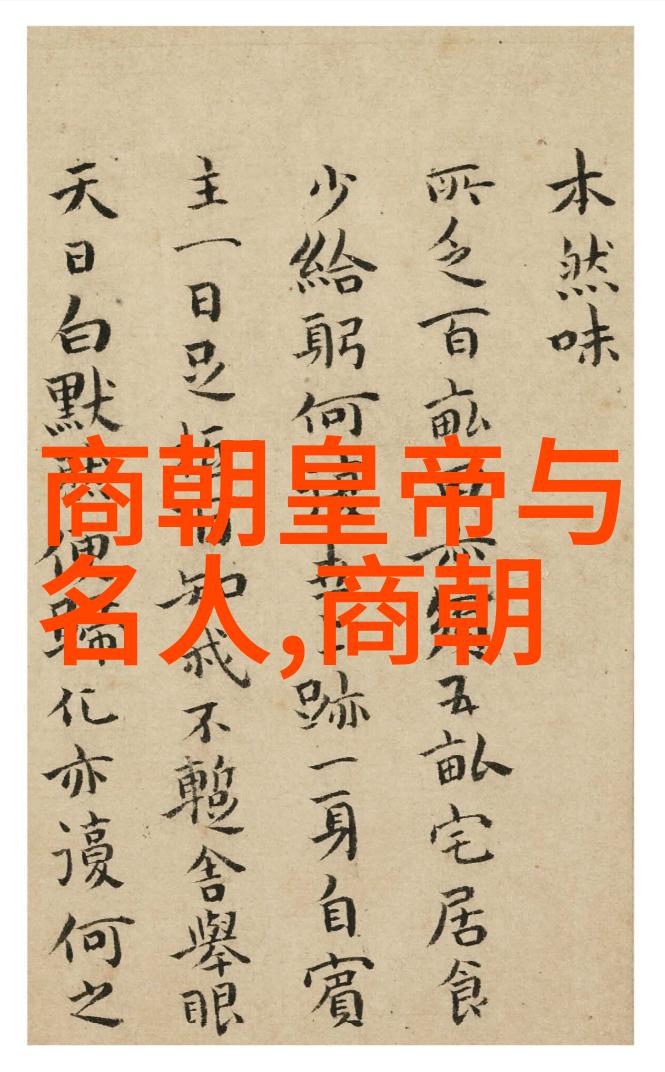 商朝皇帝与
名人,商朝
本然味
所乏百畝無五畝宅居食
少給躬何跡一身自賓
主一日足知我不暫舍舉眼
天日白默便化亦謾何之